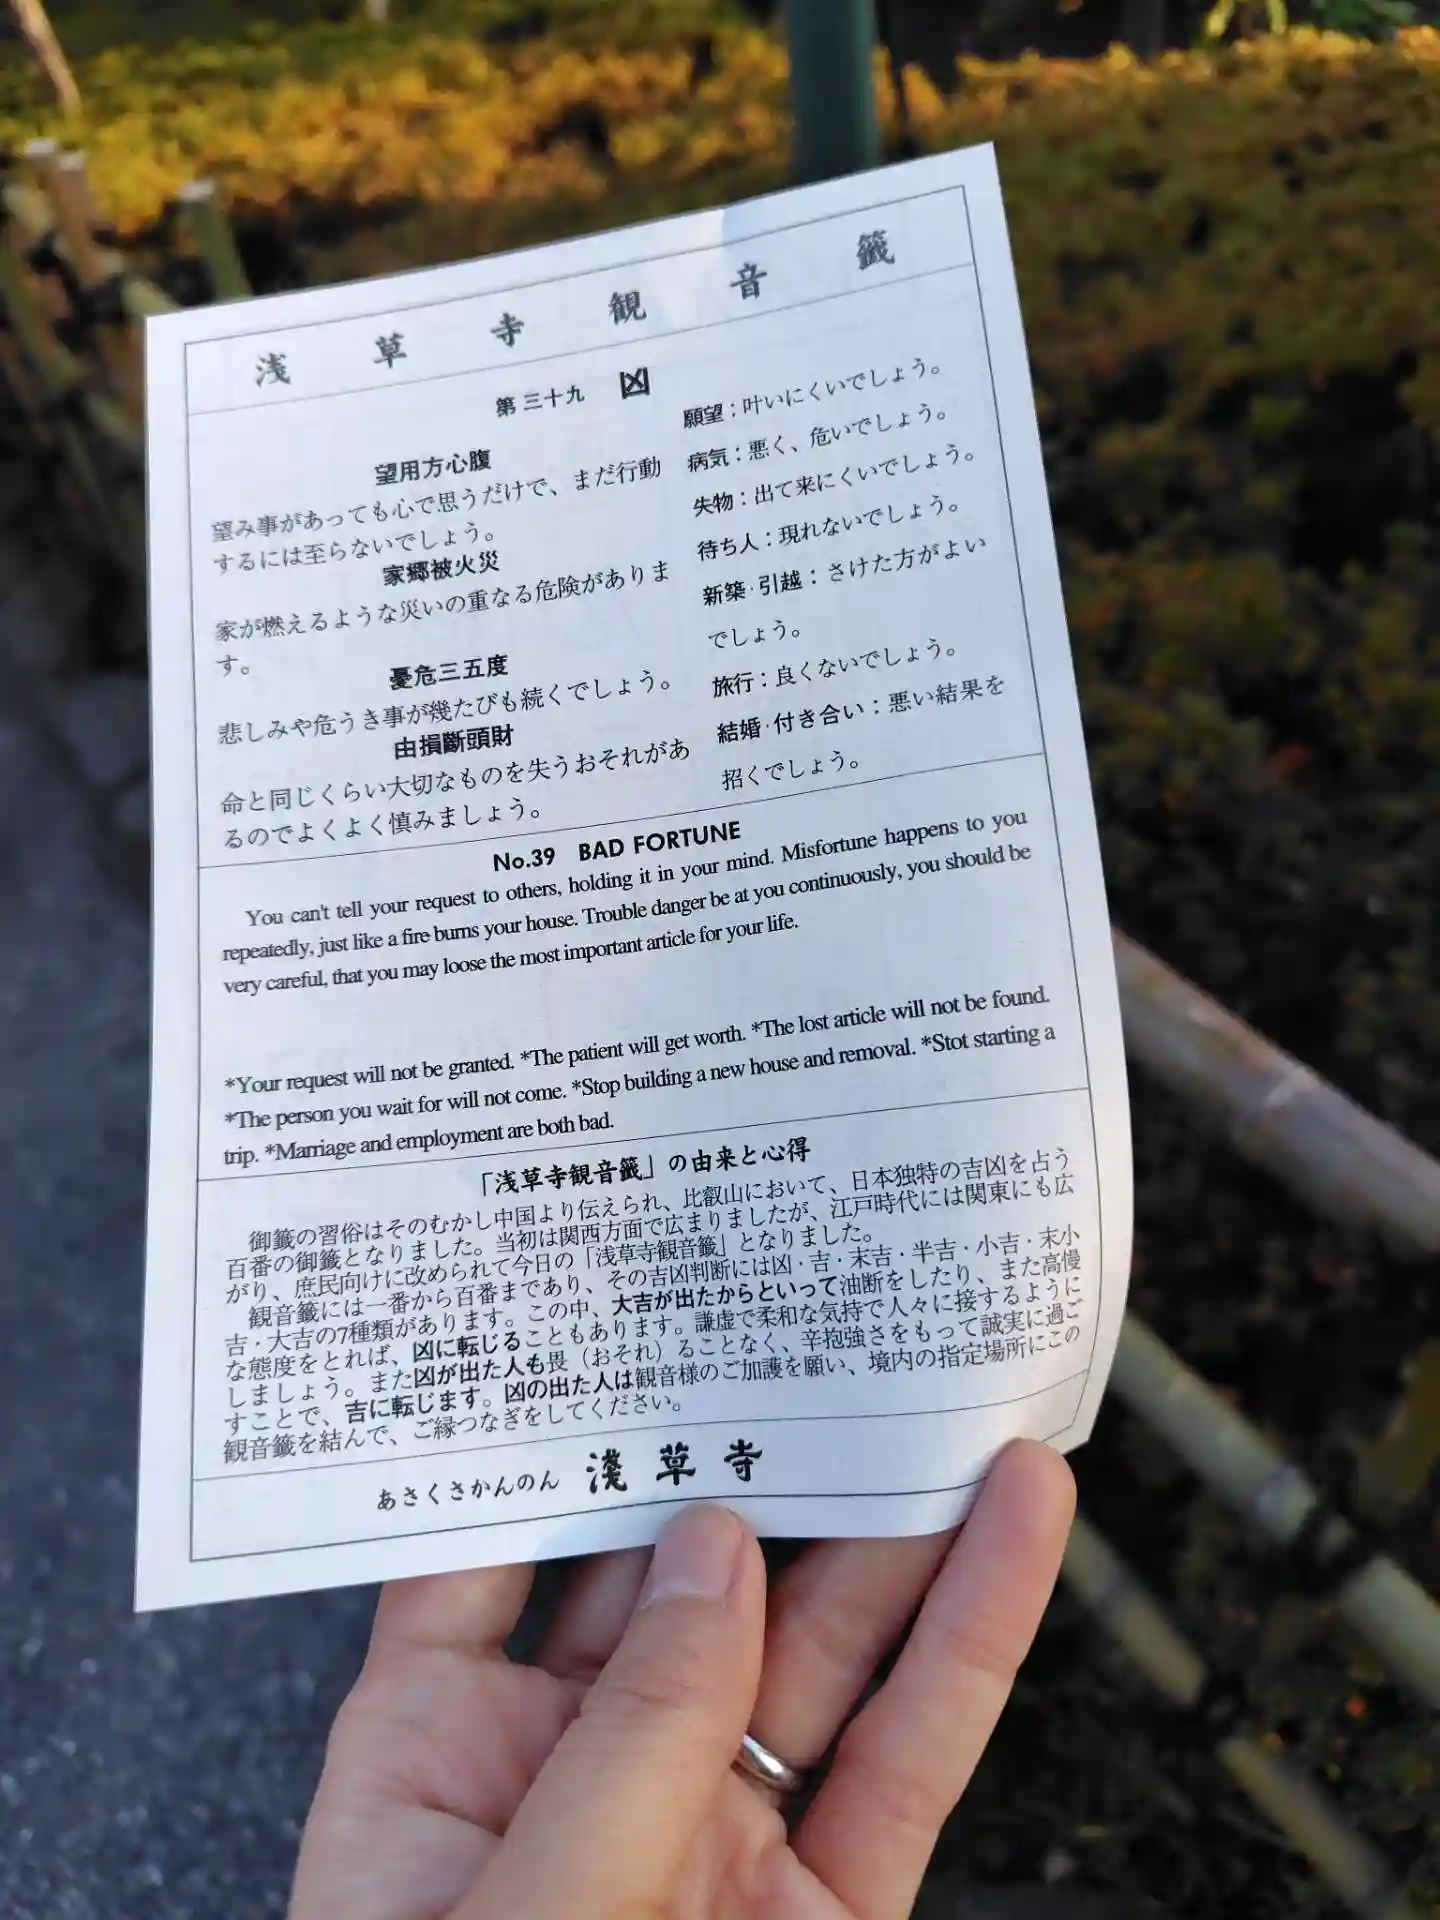 浅草寺観音籤
第三十九 凶
望用方心腹
望み事があっても心で思うだけで、まだ行動
するには至らないでしょう。
家郷被火災
家が燃えるような災いの重なる危険がありま
す。
憂危三五度
悲しみや危うき事が幾たびも続くでしょう。
由損斷頭財
命と同じくらい大切なものを失うおそれがあ
るのでよくよく慎みましょう。
願望：叶いにくいでしょう。
病気：悪く、危いでしょう。
失物：出て来にくいでしょう。
待ち人：現れないでしょう。
新築·引越：さけた方がよい
でしょう。
旅行：良くないでしょう。
結婚·付き合い：悪い結果を
招くでしょう。
No.39 BAD FORTUNE
You can't tell your request to others, holding it in your mind. Misfortune happens to you
repeatedly, just like a fire burns your house. Trouble danger be at you continuously, you should be
very careful, that you may loose the most important article for your life.
*Your request will not be granted. *The patient will get worth. *The lost article will not be found.
*The person you wait for will not come. *Stop building a new house and removal. *Stot starting a
trip. *Marriage and employment are both bad.
「浅草寺観音籤」の由来と心得
御籤の習俗はそのむかし中国より伝えられ、比叡山において、日本独特の吉凶を占う
百番の御籤となりました。当初は関西方面で広まりましたが、江戸時代には関東にも広
がり、庶民向けに改められて今日の「浅草寺観音籤」となりました。
観音籤には一番から百番まであり、その吉凶判断には凶・吉・末吉・半吉・小吉・末小
吉・大吉の7種類があります。この中、大吉が出たからといって油断をしたり、また高慢
な態度をとれば、凶に転じることもあります。謙虚で柔和な気持で人々に接するように
しましょう。また凶が出た人も畏（おそれ）ることなく、辛抱強さをもって誠実に過ご
すことで、吉に転じます。凶の出た人は観音様のご加護を願い、境内の指定場所にこの
観音籤を結んで、ご縁つなぎをしてください。
あさくさかんのん 淺草寺